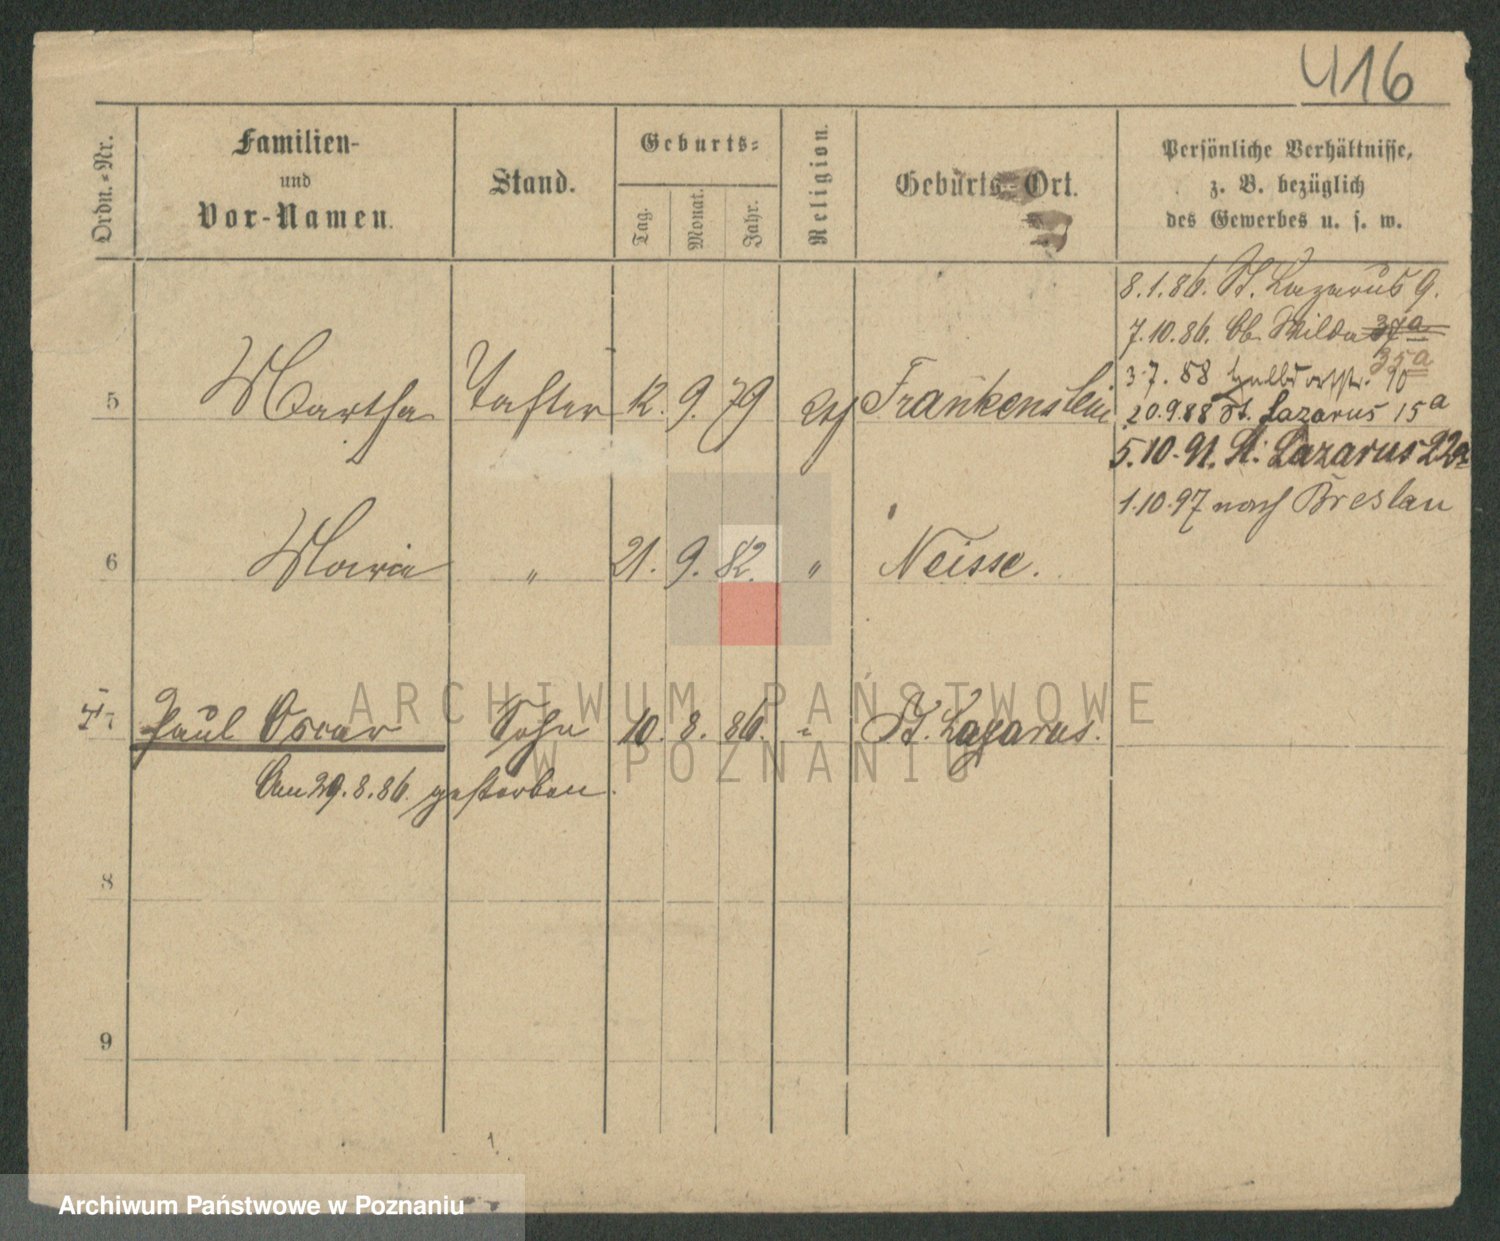 416
Ordn.-Nr.
Familien-
und
Vor-Namen.
Stand.
Geburts-
Tag.
Monat.
Jahr.
Religion.
Geburts-Ort.
Persönliche Verhältnisse,
z. B. bezüglich
des Gewerbes u. s. w.
8.1.86. St. Lazarus 9.
7.10.86. Ob. Wilda 37a
35a
3.7.88 Halbdorfstr. 10
20.9.88 St. Lazarus 15a
5.10.91. St. Lazarus 22a
1.10.97 nach Breslau
5 Martha Tochter 12. 9. 79 Frankenstein
6 Maria " 21. 9. 82. " Neisse.
† 7 Paul Oscar Sohn 10. 8. 86. " St. Lazarus.
Am 29.8.86. gestorben.
8
9
ARCHIWUM PAŃSTWOWE
W POZNANIU
Archiwum Państwowe w Poznaniu